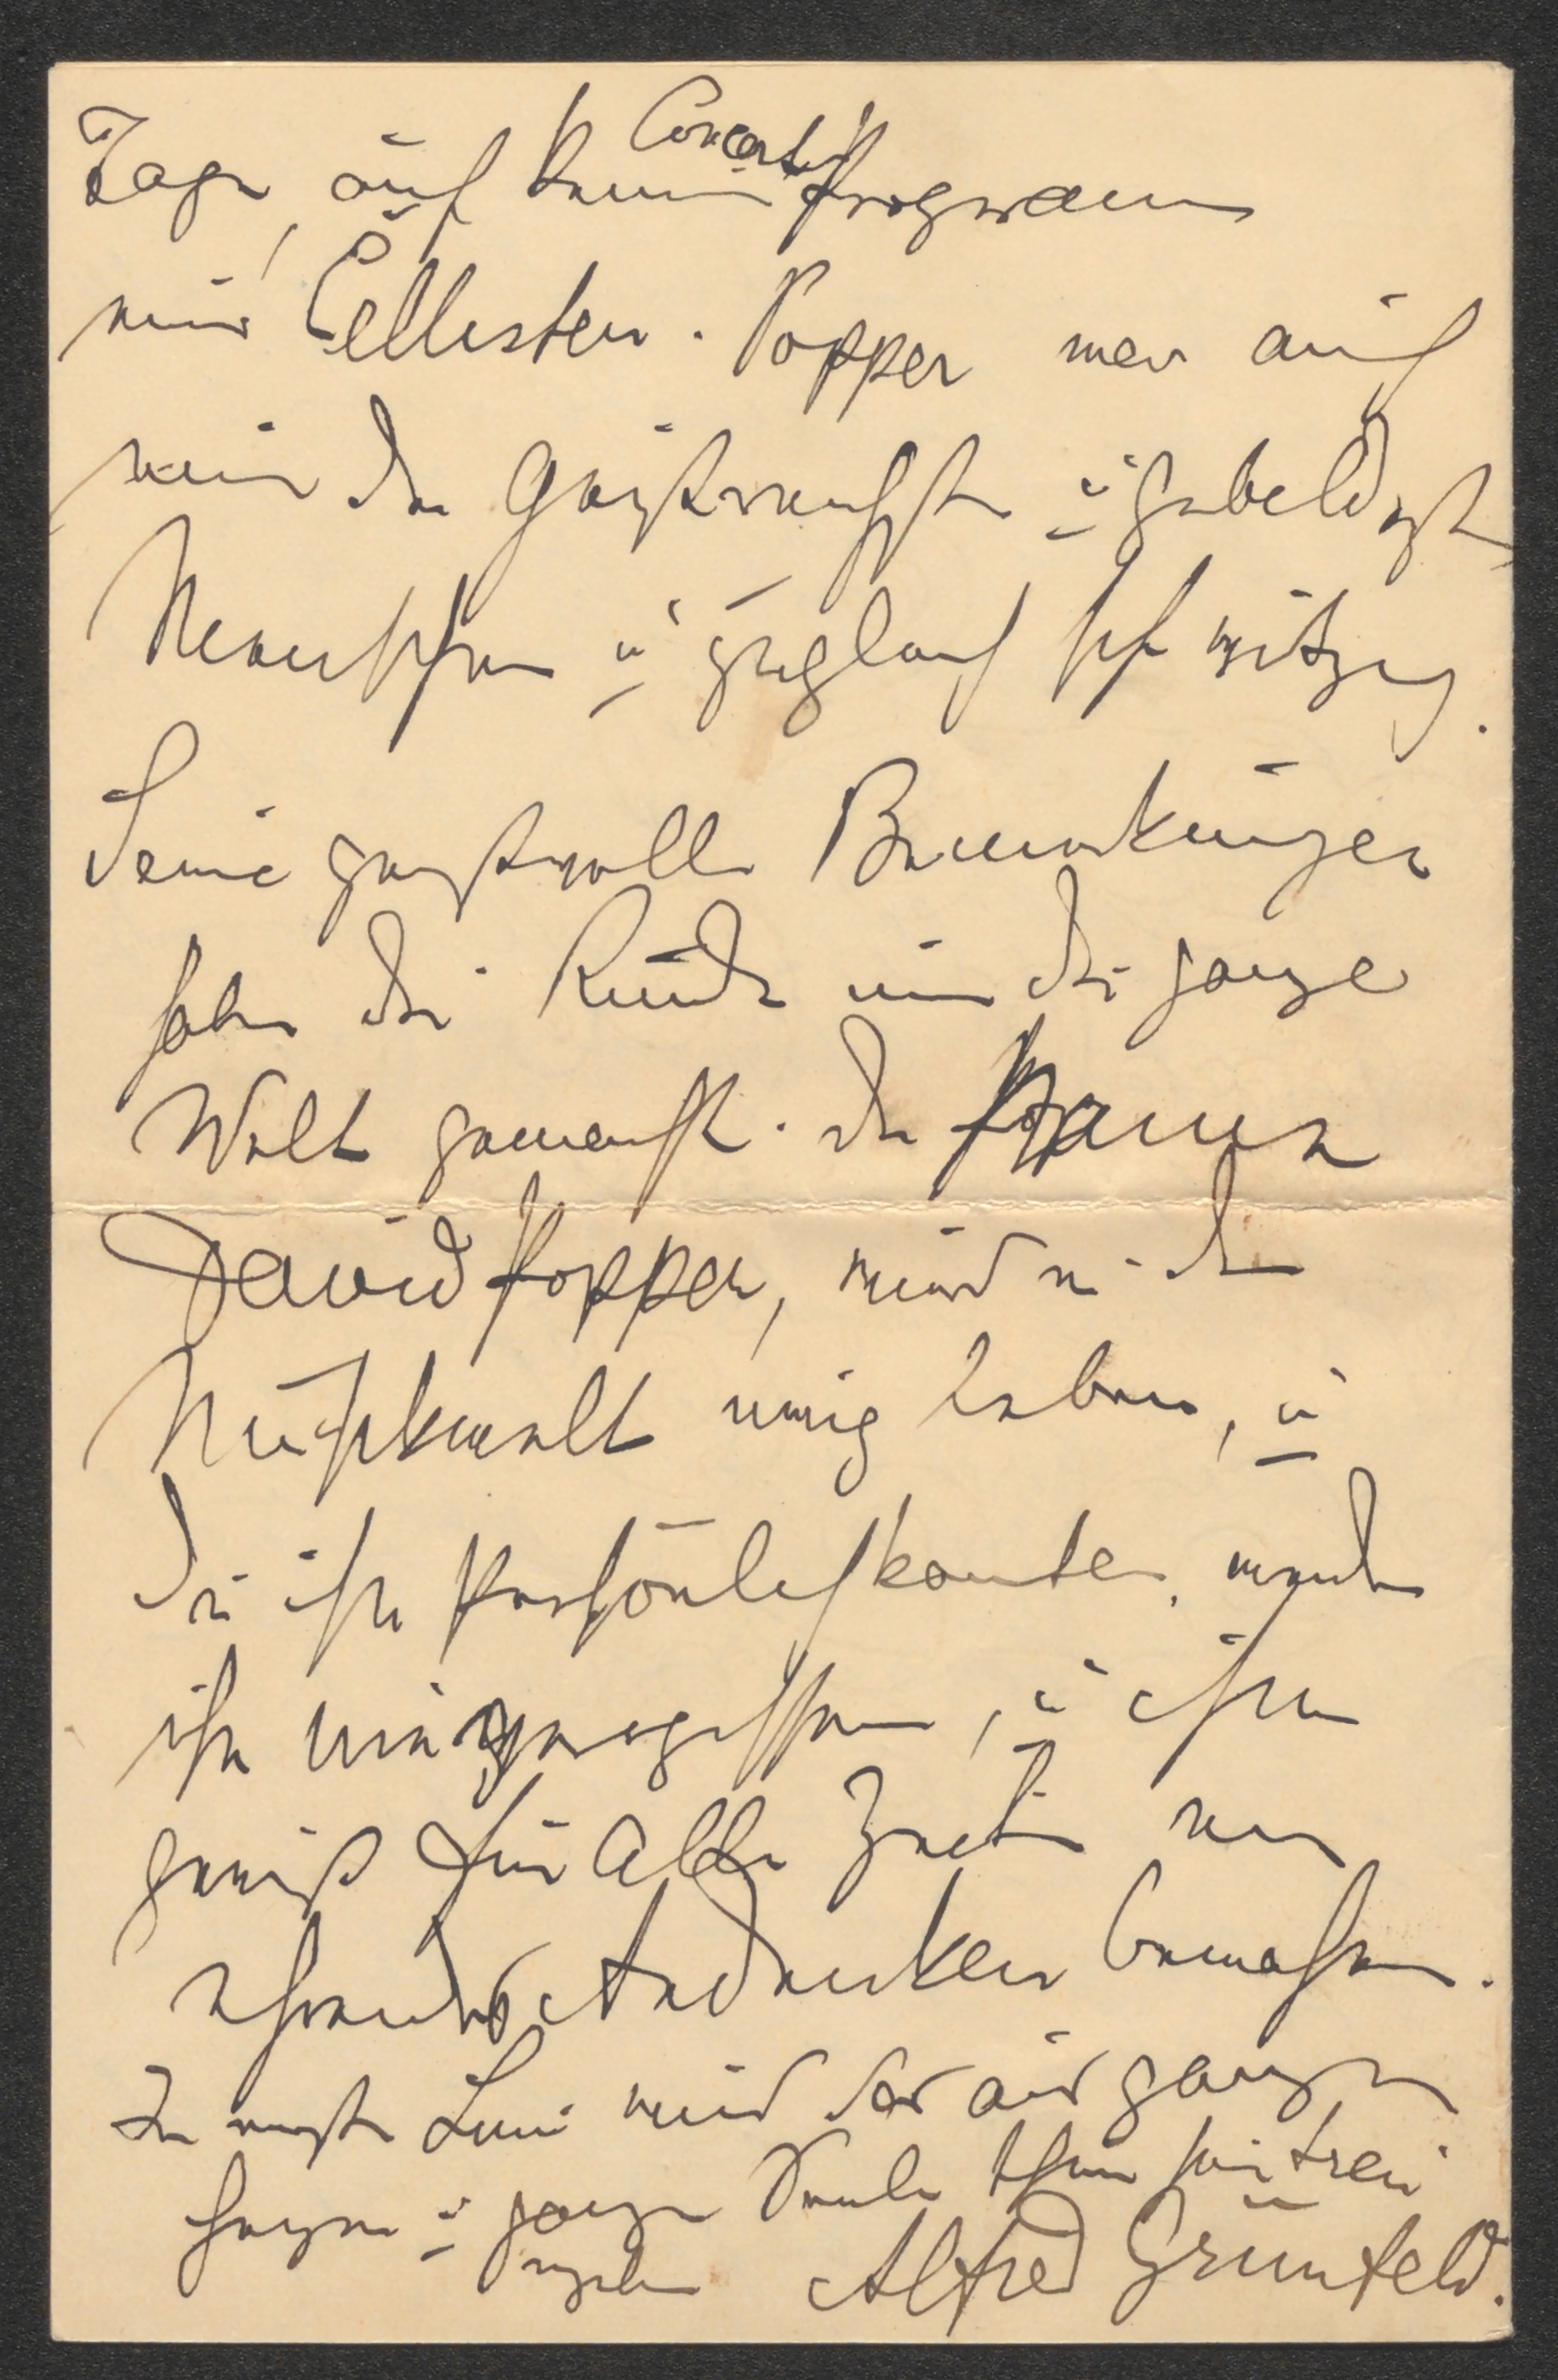 Tage, auf keinem Concert Programm
eines Cellisten. Popper war auch
einer der geistreichsten u gebildetsten
Menschen u zugleich sehr witzig.
Seine geistvollen Bemerkungen
haben die Runde um die ganze
Welt gemacht. Der Name
David Popper, wird in der
Musikwelt ewig leben, u
die ihn persönlich kannten, werden
ihn nie vergessen, u ihm
gewiß für alle Zeiten ein
ehrendes Andenken bewahren.
In erster Linie wird das aus ganzem
Herzen u ganzer Seele thun sein treu
ergebener Alfred Grünfeld.